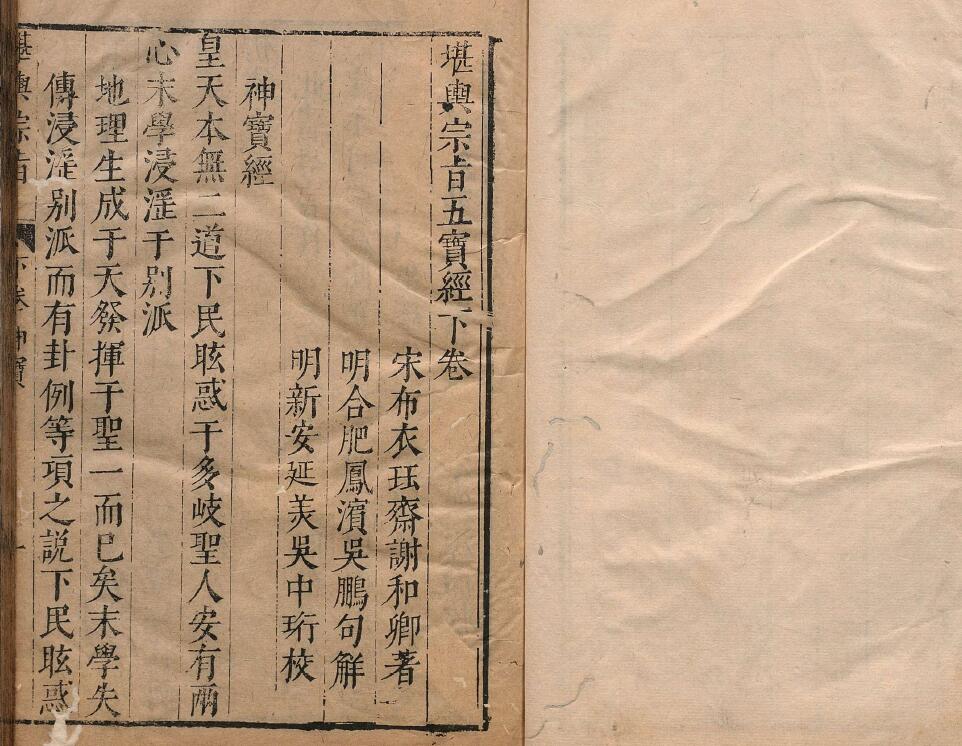 堪輿宗旨五寶經下卷
宋布衣玨齋謝和卿著
明合肥鳳濱吳鵬句解
明新安延美吳中珩校
神寶經
皇天本無二道下民眩惑于多岐聖人安有兩
心末學浸滛于别派
地理生成于天發揮于聖一而已矣末學失
傳浸滛别派而有卦例等項之説下民眩惑
堪輿宗旨 下卷神寶 一